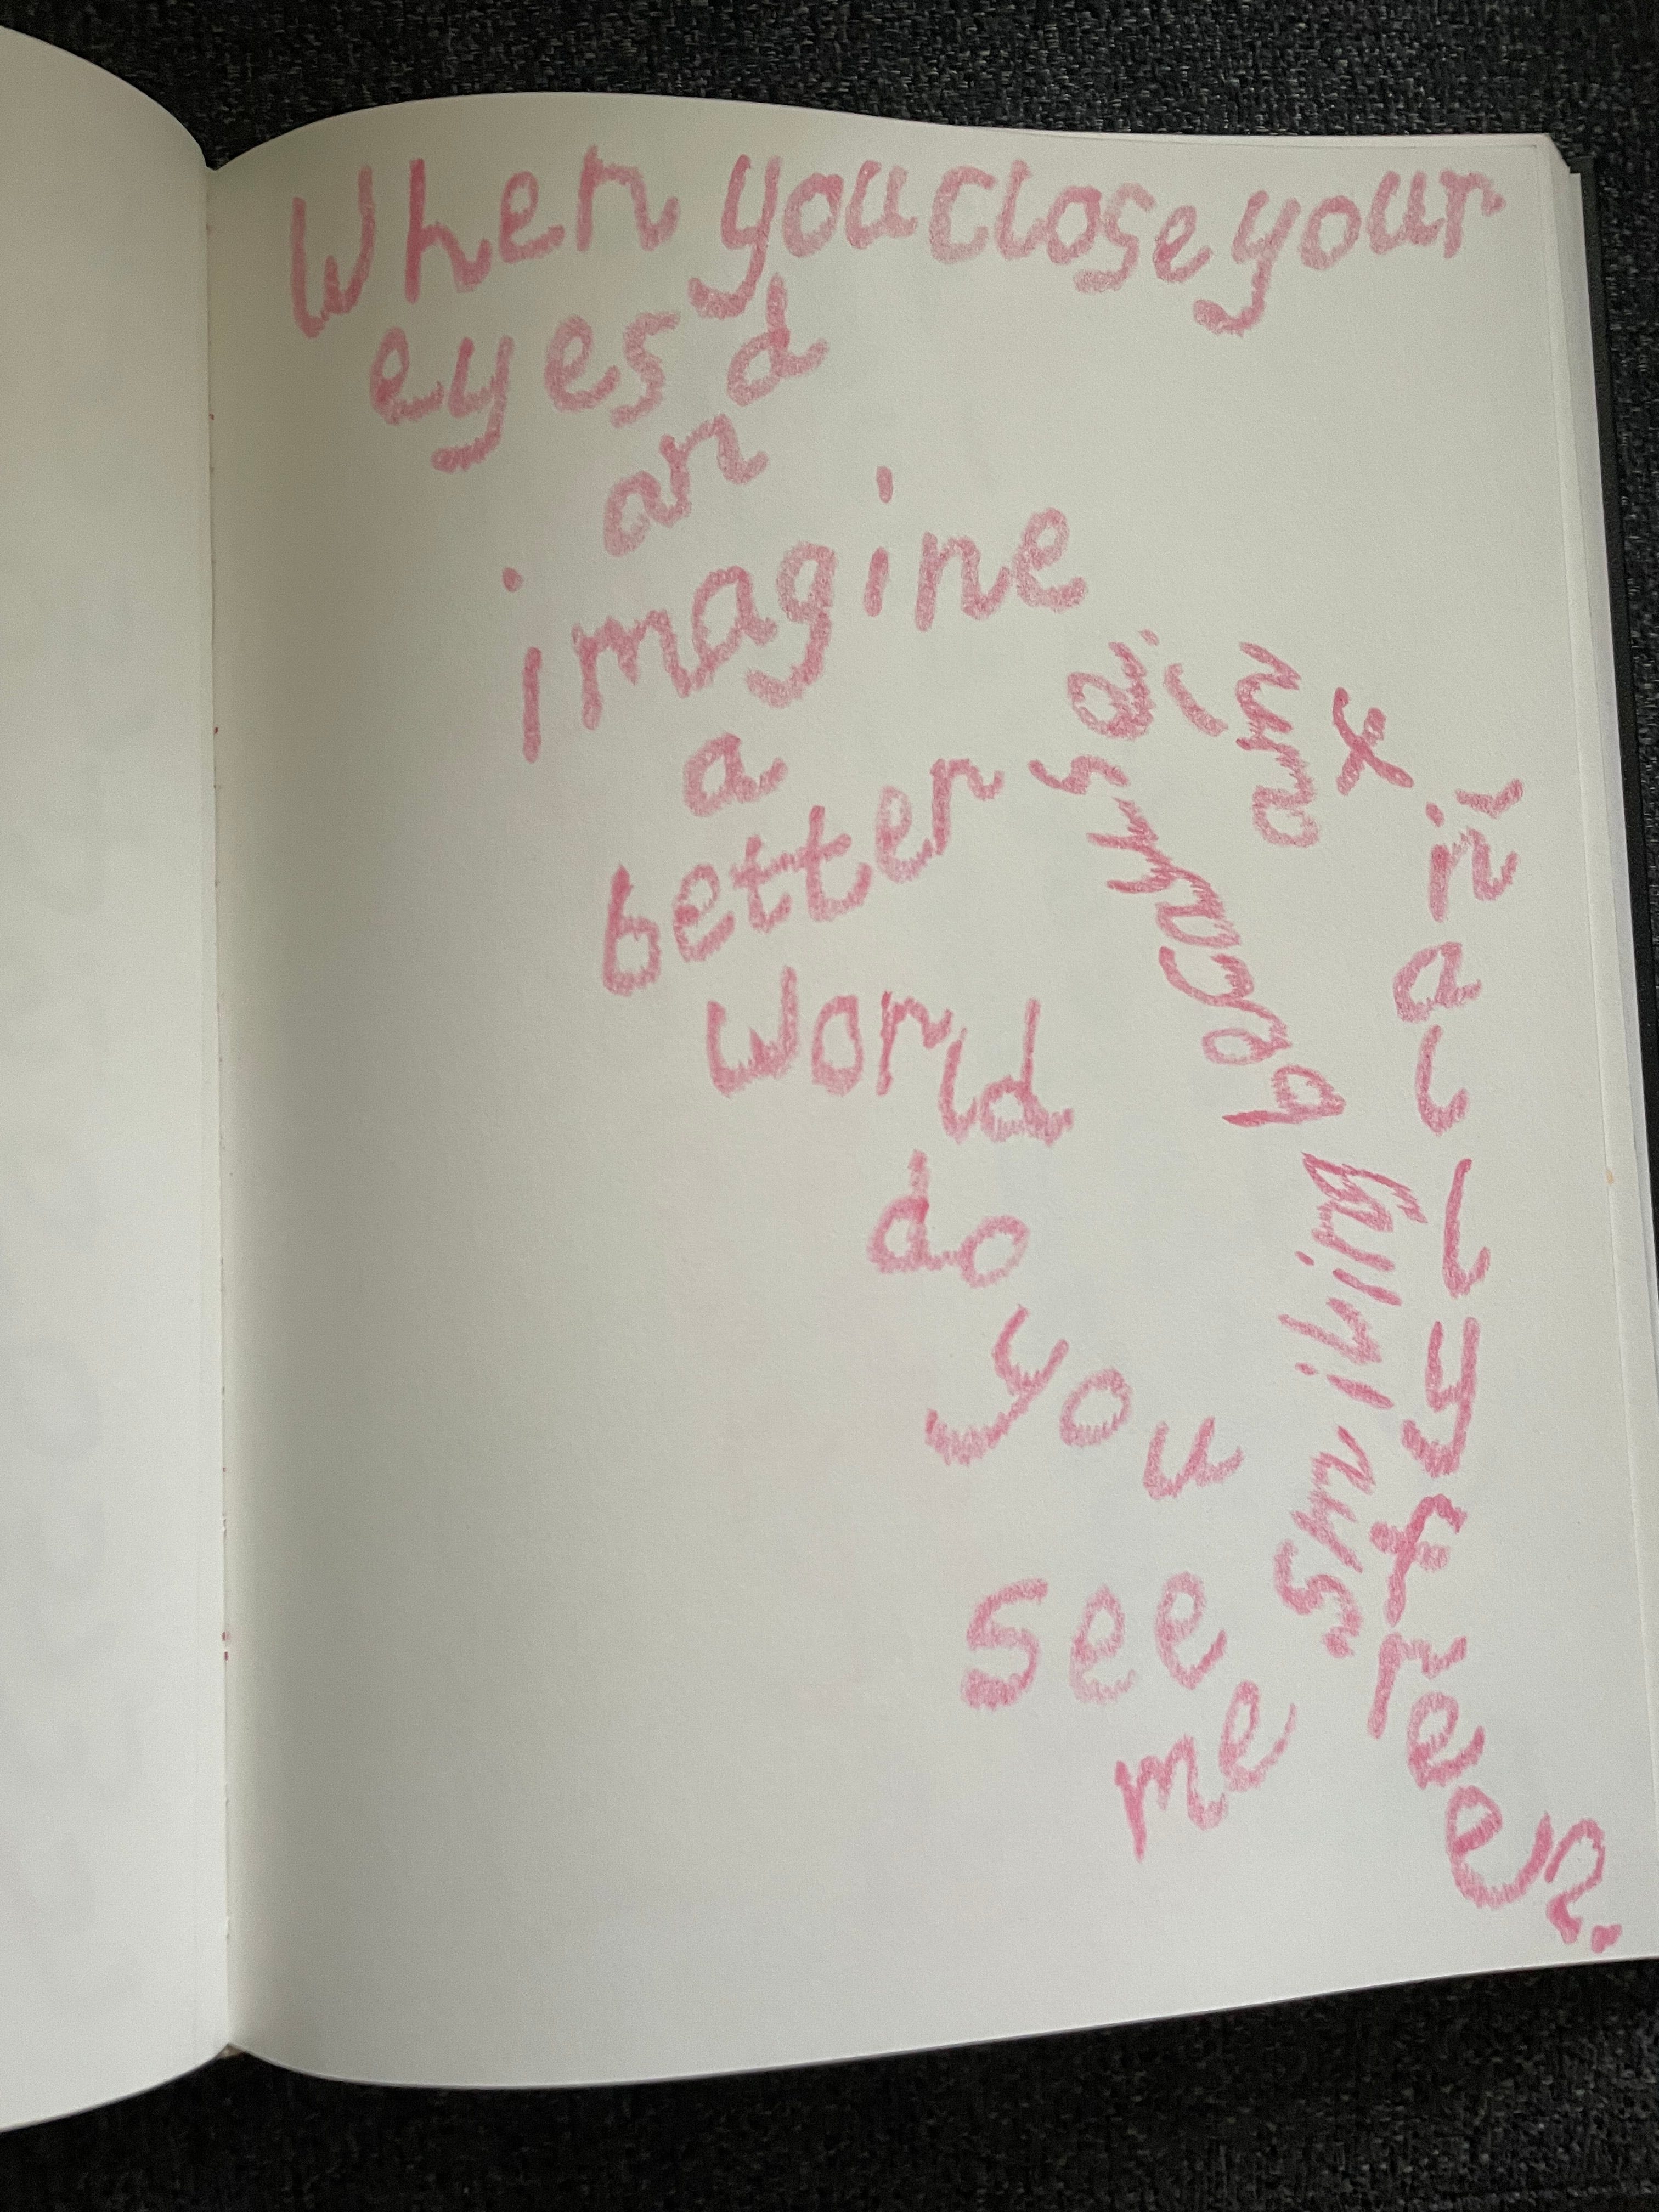 When you close your
eyes and
imagine
a
better
world
do
you
see
me
smiling
finally
free?